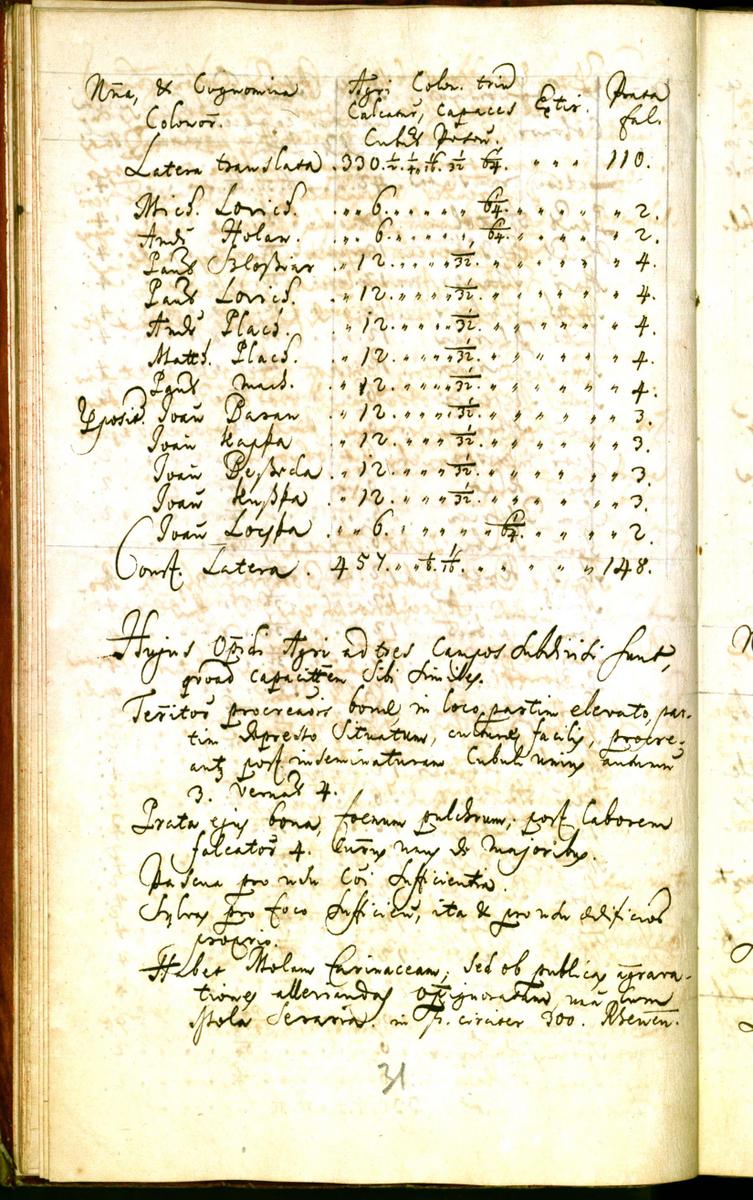 Nn̄a, & Cognomina Agri Colon. trin Extir. Prata
Colonor. Calcatur, capaces fal.
Cubul. Poson.
Latera translata . 330. 1/2. 1/4. 1/16. 1/32 1/64. " " " 110.
Mich. Lovich. " 6. " " " 1/64. " " " 2.
Andr. Holan. " 6. " " " 1/64. " " " 2.
Paul Szlossiar " 12. " " " 1/32. " " " 4.
Paul Lovich. " 12. " " " 1/32. " " " 4.
Andr. Plach. " 12. " " " 1/32. " " " 4.
Matth. Plach. " 12. " " " 1/32. " " " 4.
Paul Mach. " 12. " " " 1/32. " " " 4.
Joan Baran " 12. " " " 1/32. " " " 3.
Joan Kapka " 12. " " " 1/32. " " " 3.
Joan " 12. " " " 1/32. " " " 3.
Joan " 12. " " " 1/32. " " " 3.
Joan " 6. " " " 1/64. " " " 2.
Const. Latera . 457. " 1/8. 1/16. " " " 148.
Hujus Oppidi Agri ad tres Campos subdivisi sunt,
quoad capacittem sibi similes.
Territor procreaōis bonæ, in loco partim elevato, par-
tim depresso situatum, culturæ facilis, procre-
ant post inseminaturam Cubuli unius autumn
3. vernal 4.
Prata ejus bona, foenum pulchrum, post laborem
falcator 4. currus unus de majoribus.
Pascua pro usu sufficientia.
Sylvas pro foco sufficien, ita & pro usu ædificior
proprio.
Habet Molam farinaceam, sed ob publicas agrava-
tiones alleviandas oppignoratam, una cum
Mola Serraria. in circiter 300. Rhenen.
31